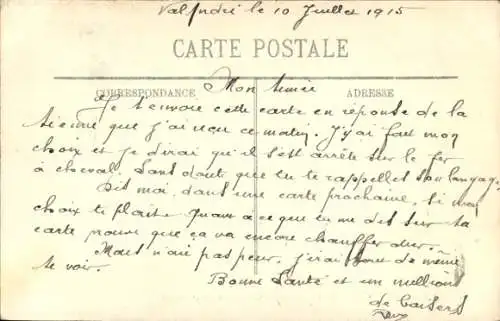 Valfndré le 10 Juillet 1915
CARTE POSTALE
CORRESPONDANCE
ADRESSE
Mon Aimée
Je t'envoie cette carte en réponse de la
tienne que j'ai reçu ce matin. J'y ai fait mon
choix et je dirai qu'il s'est arrête sur le fer
à cheval. Sans doute que tu te rappelles son langage.
Dis moi, dans une carte prochaine, si mon
choix te plait. Quant a ce que tu me dis sur ta
carte prouve que ça va encore chauffer dur.
Mais n'aie pas peur, j'irai tout de même
te voir.
Bonne Santé et un million
de baisers